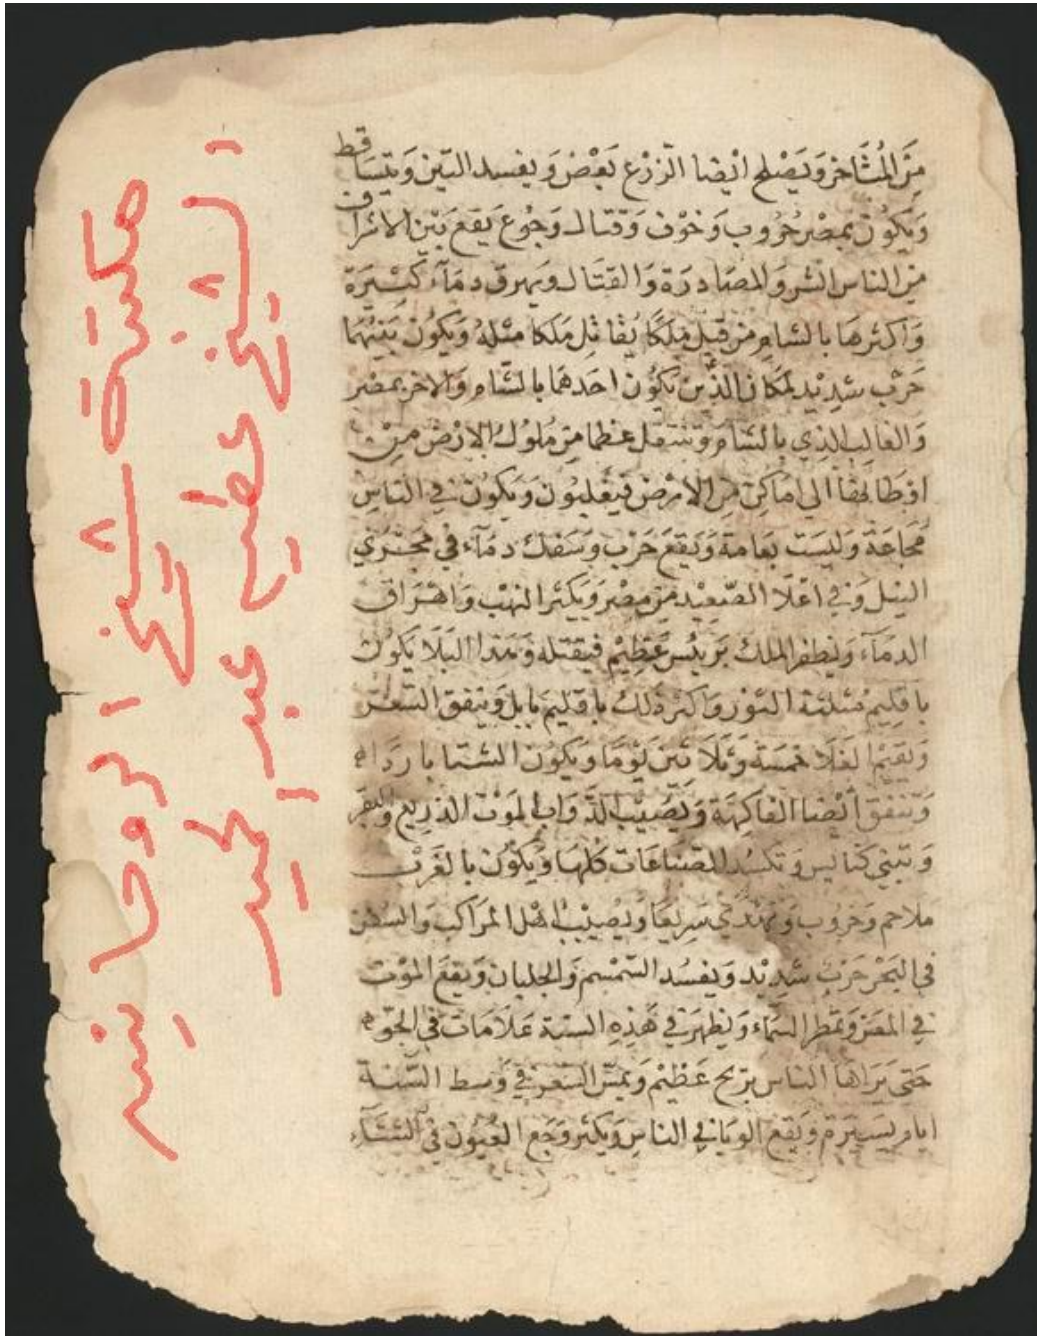 من المتاخر ويصلح ايضا الزرع بعض ويفسد التين ويتساقط
ويكون بمصر حروب وخوف وقتال وجوع يقع بين الاشراف
من الناس الشر والمصادرة والقتال ويهرق دمآء كثيرة
واكثرها بالشام من قبل ملكا يقاتل ملكا مثله ويكون بينهما
حرب شديد لمكان الذين يكون احدهما بالشام والاخر بمصر
والغالب الذي بالشام وتنتقل عظما من ملوك الارض من
اوطانها الي اماكن من الارض فيغلبون ويكون في الناس
مجاعة وليست بعامة ويقع حرب وسفك دمآء في مجري
النيل وفي اعلا الصعيد من مصر ويكثر النهب واهراق
الدمآء ويظفر الملك بريس عظيم فيقتله وهذا البلا يكون
باقليم مثلثة الثور واكثر ذلك باقليم بابل وينفق السعر
ويقيم الغلا خمسة وثلاثين يوما ويكون الشتا بارد
وتنفق ايضا الفاكهة ويصيب الدواب الموت الذريع والبقر
وتبني كنايس وتكسد الصناعات كلها ويكون بالغرب
ملاحم وحروب سريعا ويصيب اهل المراكب والسفن
في البحر حرب شديد ويفسد السمسم والجلبان ويقع الموت
في المعز وتمطر السماء ويظهر في هذه السنة علامات في الجو
حتي يراها الناس بريح عظيم السعر في وسط السنة
ايام يسيرة ويقع الوبا في الناس ويكثر وجع العيون في الشتآء
مكتبة شيخ الروحانيه
الشيخ عطيه عبد الحميد